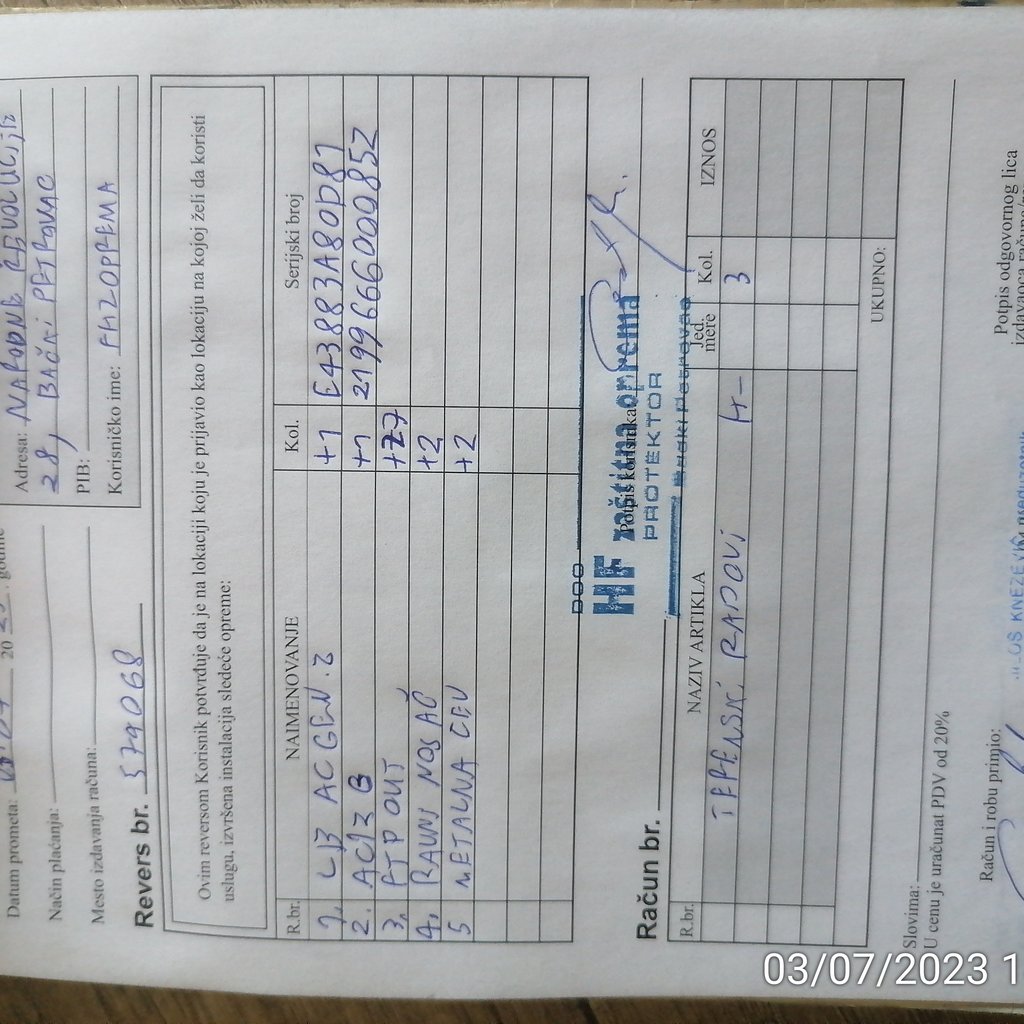 Datum prometa: 20 23. godine
Način plaćanja:
Mesto izdavanja računa:
Adresa: NARODNE REVOLUCIJE
28, BAČKI PETROVAC
PIB:
Korisničko ime: HFZOPREMA
Revers br. 579068
Ovim reversom Korisnik potvrđuje da je na lokaciji koju je prijavio kao lokaciju na kojoj želi da koristi
uslugu, izvršena instalacija sledeće opreme:
R.br. NAIMENOVANJE Kol. Serijski broj
1. AC GEN. 2 +1 E43883A80D81
2. +1 2199666000852
3. FTP OUT
4. RAVNI NOSAČ +2
5 METALNA CEV +2
DOO
HF zaštitna oprema
Potpis korisnika
PROTEKTOR
Bački Petrovac
Račun br.
R.br. NAZIV ARTIKLA Jed. mere Kol. IZNOS
TERENSKI RADOVI H- 3
UKUPNO:
Slovima:
U cenu je uračunat PDV od 20%
Račun i robu primio:
Potpis odgovornog lica
izdavaoca računa
MILOŠ KNEŽEVIĆ
03/07/2023 1